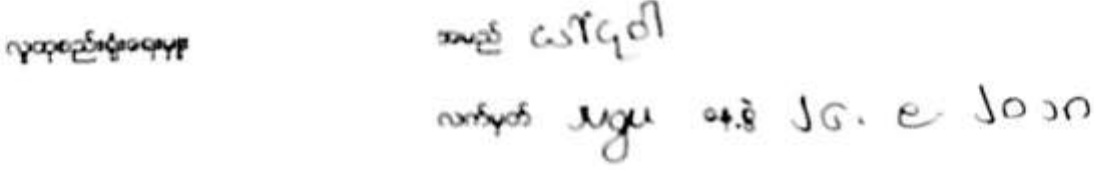 လူထုစည်းရုံးရေးမှူး အမည် ဒေါ်ငုဝါ
လက်မှတ် Ngu နေ့စွဲ ၂၄. ၉ ၂၀၁၈